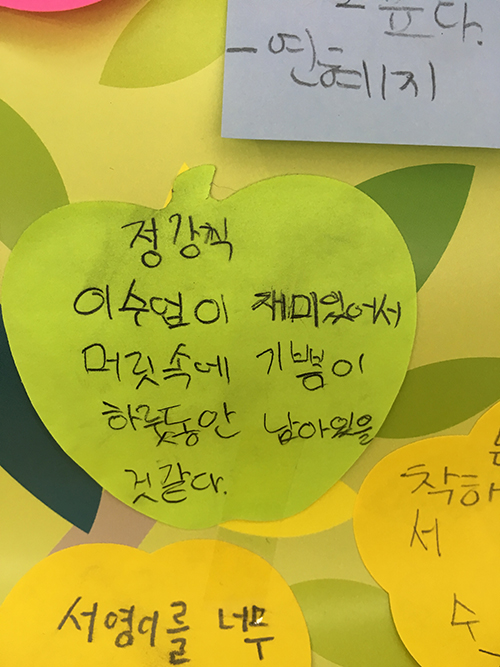 요다.
-연혜지
정강찍
이수업이 재미있어서
머릿속에 기쁨이
하룻동안 남아있을
것같다.
착하
서
수
서영이를 너무